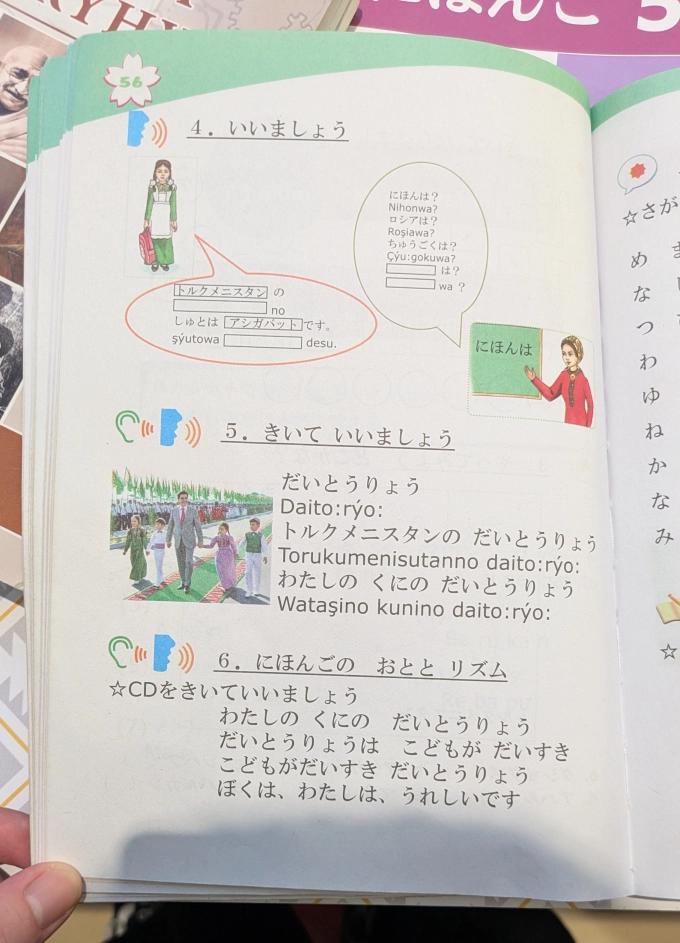 にほんご 5
56
4. いいましょう
にほんは？
Nihonwa?
ロシアは？
Roşiawa?
ちゅうごくは？
Çýu:gokuwa?
は？
wa ?
トルクメニスタン の
no
しゅとは アシガバット です。
şýutowa desu.
にほんは
5. きいて いいましょう
だいとうりょう
Daito:rýo:
トルクメニスタンの だいとうりょう
Torukumenisutanno daito:rýo:
わたしの くにの だいとうりょう
Wataşino kunino daito:rýo:
6. にほんごの おとと リズム
☆CDをきいていいましょう
わたしの くにの だいとうりょう
だいとうりょうは こどもが だいすき
こどもがだいすき だいとうりょう
ぼくは、わたしは、うれしいです
☆さが
め
な
つ
わ
ゆ
ね
か
な
み
☆